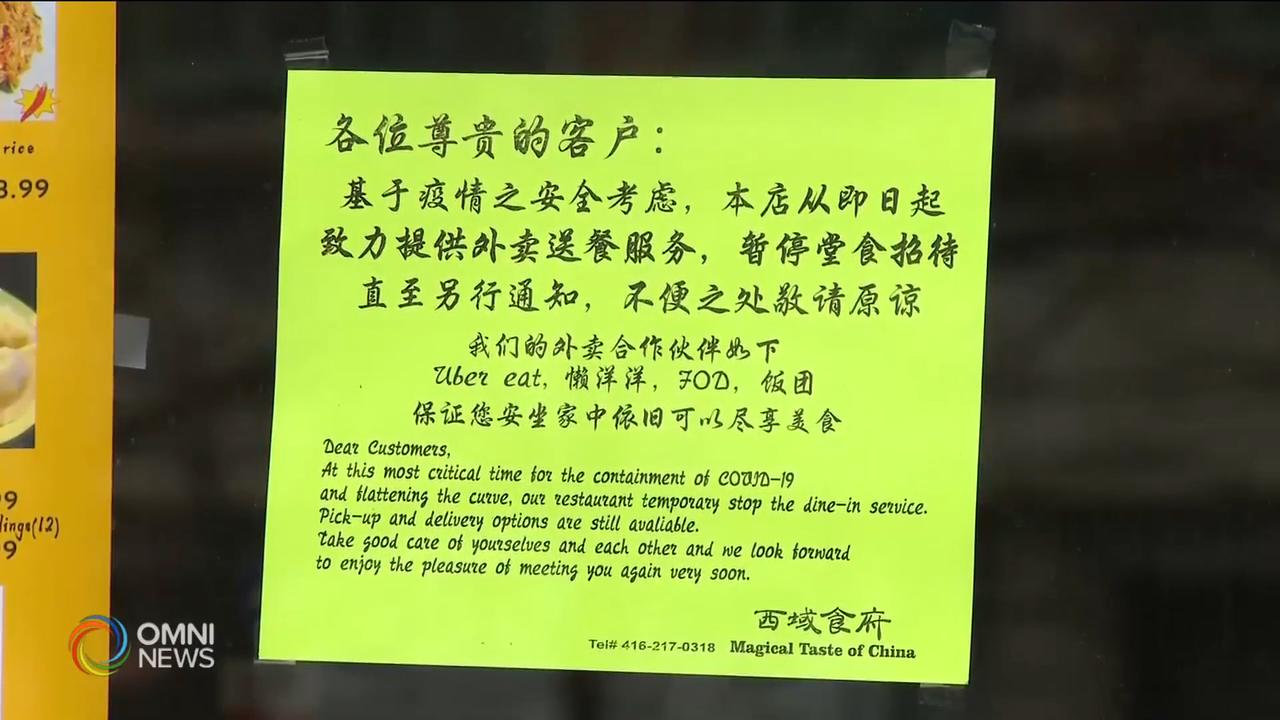 rice
8.99
9
lings(12)
9
各位尊贵的客户：
基于疫情之安全考虑，本店从即日起
致力提供外卖送餐服务，暂停堂食招待
直至另行通知，不便之处敬请原谅
我们的外卖合作伙伴如下
Uber eat, 懒洋洋, FOD, 饭团
保证您安坐家中依旧可以尽享美食
Dear Customers,
At this most critical time for the containment of COVID-19
and flattening the curve, our restaurant temporary stop the dine-in service.
Pick-up and delivery options are still avaliable.
Take good care of yourselves and each other and we look forward
to enjoy the pleasure of meeting you again very soon.
西域食府
Tel# 416-217-0318 Magical Taste of China
OMNI
NEWS